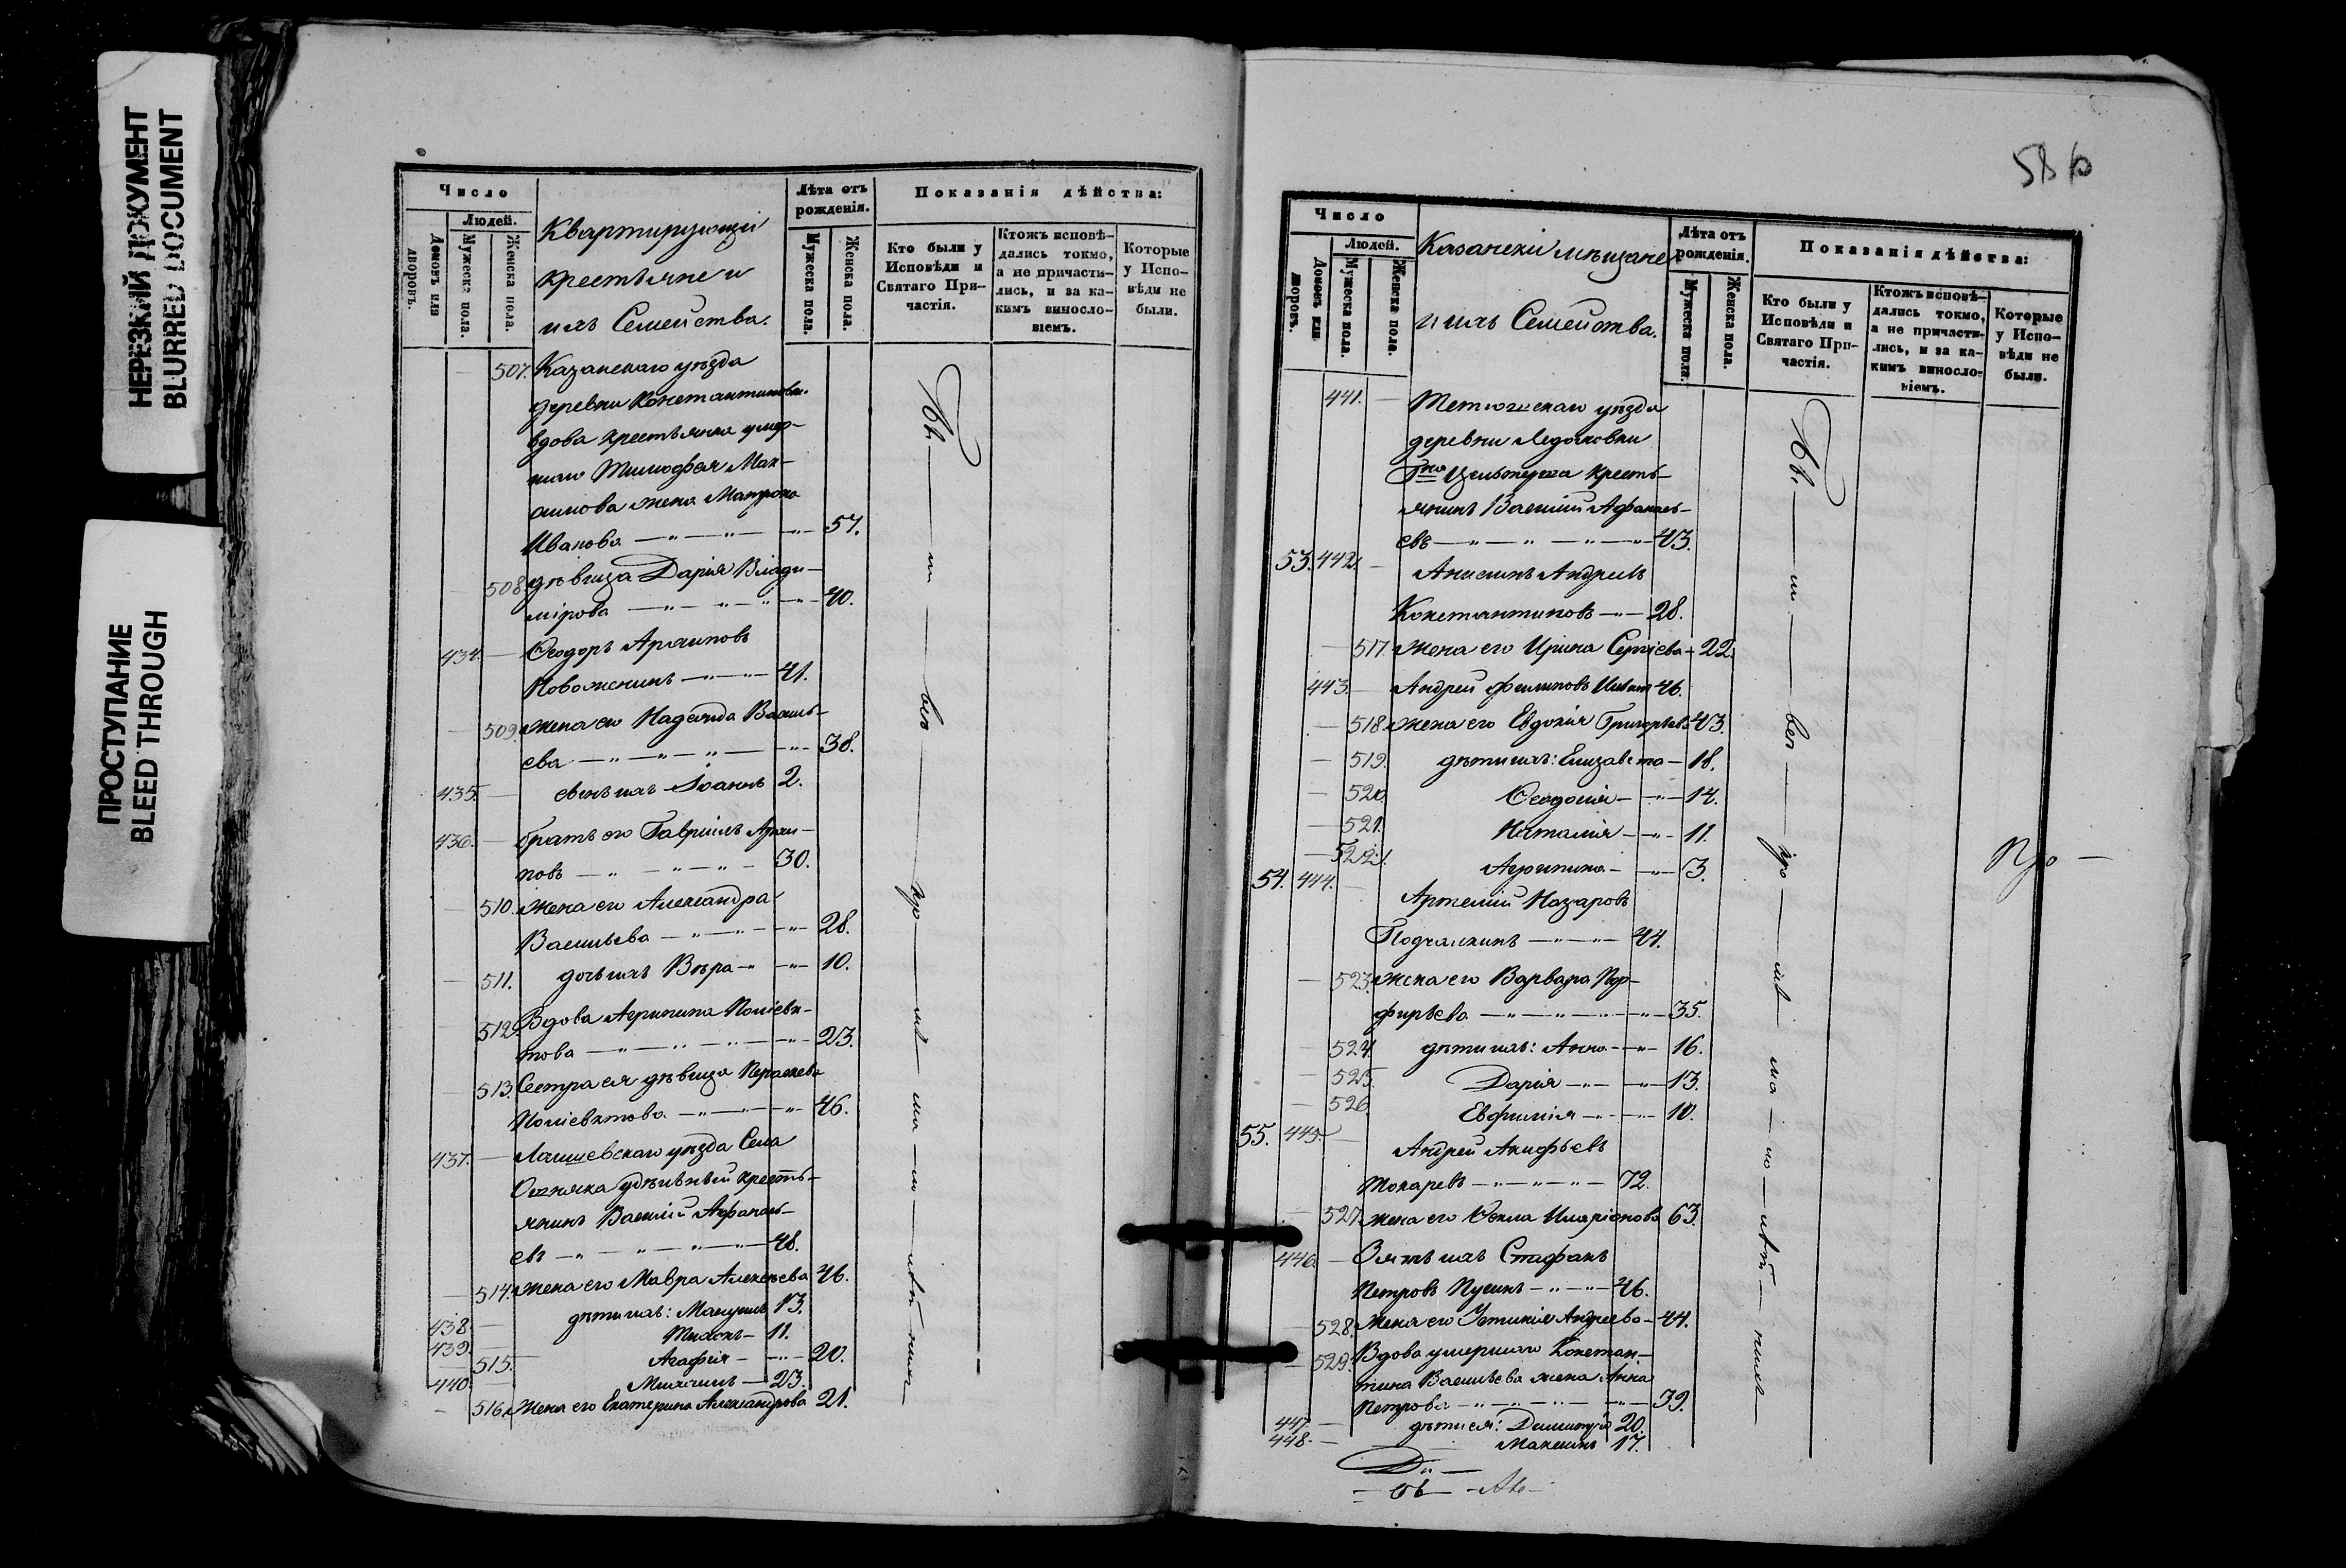 НЕРЕЗКИЙ ДОКУМЕНТ
BLURRED DOCUMENT
ПРОСТУПАНИЕ
BLEED THROUGH
Число
Людей.
Домовъ или дворовъ.
Мужеска пола.
Женска пола.
Квартирующіи
крестьяне и
ихъ Семейства.
Лѣта отъ рожденія.
Мужеска пола.
Женска пола.
Показанія дѣйства:
Кто были у Исповѣди и Святаго Причастія.
Ктожъ исповѣдались токмо, а не причастились, и за какимъ винословіемъ.
Которые у Исповѣди не были.
507. Казанскаго уѣзда
деревни Константиновки
вдова крестьянка умер-
шаго Тимофея Мак-
симова жена Матрона
Иванова 57.
508. дѣвица Дарія Влади-
мірова 40.
434. Ѳеодоръ Архиповъ
Новоженинъ 41.
509. Жена его Надежда Василь-
ева 38.
435. сынъ ихъ Іоаннъ 2.
436. братъ его Гавріилъ Архи-
повъ 30.
510. Жена его Александра
Васильева 28.
511. дочь ихъ Вѣра 10.
512. Вдова Агрипина Поліевк-
това 23.
513. Сестра ея дѣвица Парасков
Поліевктова 46.
437. Лаишевскаго уѣзда Села
удѣльный кресть-
янинъ Василій Афанась-
евъ 48.
514. Жена его Мавра Алексѣева 46.
438. дѣти ихъ: 13.
439. 11.
515. Агафія 20.
440. 23.
516. Жена его Екатерина Александрова 21.
586
Число
Людей.
Домовъ или дворовъ.
Мужеска пола.
Женска пола.
Казанскіи мѣщане
и ихъ Семейства.
Лѣта отъ рожденія.
Мужеска пола.
Женска пола.
Показанія дѣйства:
Кто были у Исповѣди и Святаго Причастія.
Ктожъ исповѣдались токмо, а не причастились, и за какимъ винословіемъ.
Которые у Исповѣди не были.
441. Тетюшскаго уѣзда
деревни
кресть-
янинъ Василій Афанась-
евъ 43.
53. 442. Анисимъ Андреевъ
Константиновъ 28.
517. Жена его Ирина Сергіева 22.
443. Андрей Филиповъ 46.
518. Жена его Евдокія Григорьева 43.
519. дѣти ихъ: Елизавета 18.
520. Ѳеодосія 14.
521. Наталія 11.
522. Агрипина 3.
54. 444. Артемій Назаровъ
44.
523. Жена его Варвара Пор-
фирьева 35.
524. дѣти ихъ: Анна 16.
525. Дарія 13.
526. Евфимія 10.
55. 445. Андрей Акифьевъ
Токаревъ 72.
527. Жена его Ѳекла Иларіонова 63.
446. Зять ихъ Стефанъ
Петровъ 46.
528. Жена его Устинія Андреева 44.
529. Вдова умершаго Констан-
тина Васильева жена Анна
Петрова 39.
447. дѣти ея: Димитрій 20.
448. Максимъ 17.